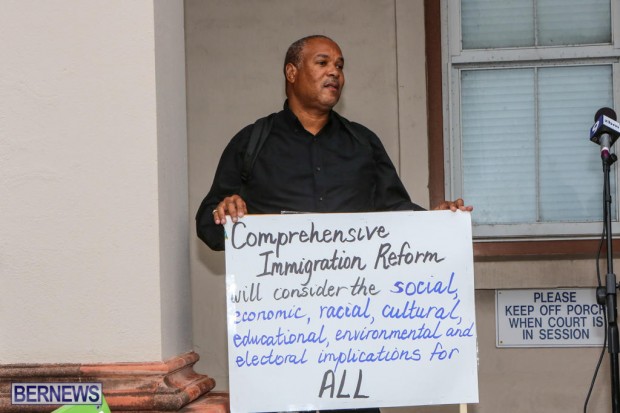 Comprehensive
Immigration Reform
will consider the social,
economic, racial, cultural,
educational, environmental and
electoral implications for
ALL
PLEASE
KEEP OFF PORCH
WHEN COURT IS
IN SESSION
BERNEWS